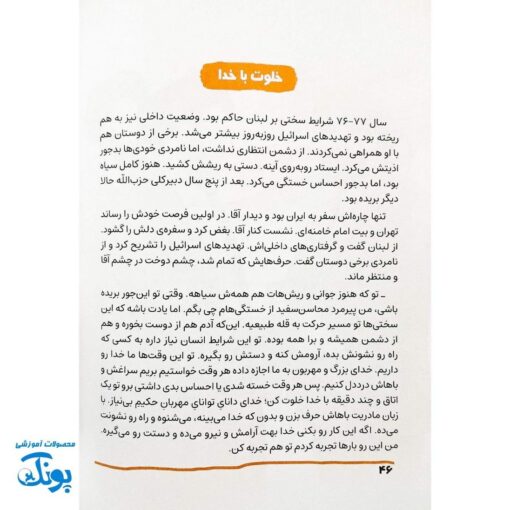 خلوت با خدا
سال ۷۷-۷۶ شرایط سختی بر لبنان حاکم بود. وضعیت داخلی نیز به هم
ریخته بود و تهدیدهای اسرائیل روزبه‌روز بیشتر می‌شد. برخی از دوستان هم
با او همراهی نمی‌کردند. از دشمن انتظاری نداشت، اما نامردی خودی‌ها بدجور
اذیتش می‌کرد. ایستاد روبه‌روی آینه. دستی به ریشش کشید. هنوز کامل سیاه
بود، اما بدجور احساس خستگی می‌کرد. بعد از پنج سال دبیرکلی حزب‌الله حالا
دیگر بریده بود.
تنها چاره‌اش سفر به ایران بود و دیدار آقا. در اولین فرصت خودش را رساند
تهران و بیت امام خامنه‌ای. نشست کنار آقا. بغض کرد و سفره‌ی دلش را گشود.
از لبنان گفت و گرفتاری‌های داخلی‌اش. تهدیدهای اسرائیل را تشریح کرد و از
نامردی برخی دوستان گفت. حرف‌هایش که تمام شد، چشم دوخت در چشم آقا
و منتظر ماند.
ـ تو که هنوز جوانی و ریش‌هات هم همه‌ش سیاهه. وقتی تو این‌جور بریده
باشی، من پیرمرد محاسن‌سفید از خستگی‌هام چی بگم. اما یادت باشه که این
سختی‌ها تو مسیر حرکت به قله طبیعیه. این‌که آدم هم از دوست بخوره و هم
از دشمن همیشه و برا همه بوده. تو این شرایط انسان نیاز داره به کسی که
راه رو نشونش بده، آرومش کنه و دستش رو بگیره. تو این وقت‌ها ما خدا رو
داریم. خدای بزرگ و مهربون به ما اجازه داده هر وقت خواستیم بریم سراغش و
باهاش درددل کنیم. پس هر وقت خسته شدی یا احساس بدی داشتی برو تو یک
اتاق و چند دقیقه با خدا خلوت کن؛ خدای دانای توانای مهربان حکیم بی‌نیاز. با
زبان مادریت باهاش حرف بزن و بدون که خدا می‌بینه، می‌شنوه و راه رو نشونت
می‌ده. اگه این کار رو بکنی خدا بهت آرامش و نیرو می‌ده و دستت رو می‌گیره.
من این رو بارها تجربه کردم تو هم تجربه کن.
۴۶
محصولات آموزشی
پونک